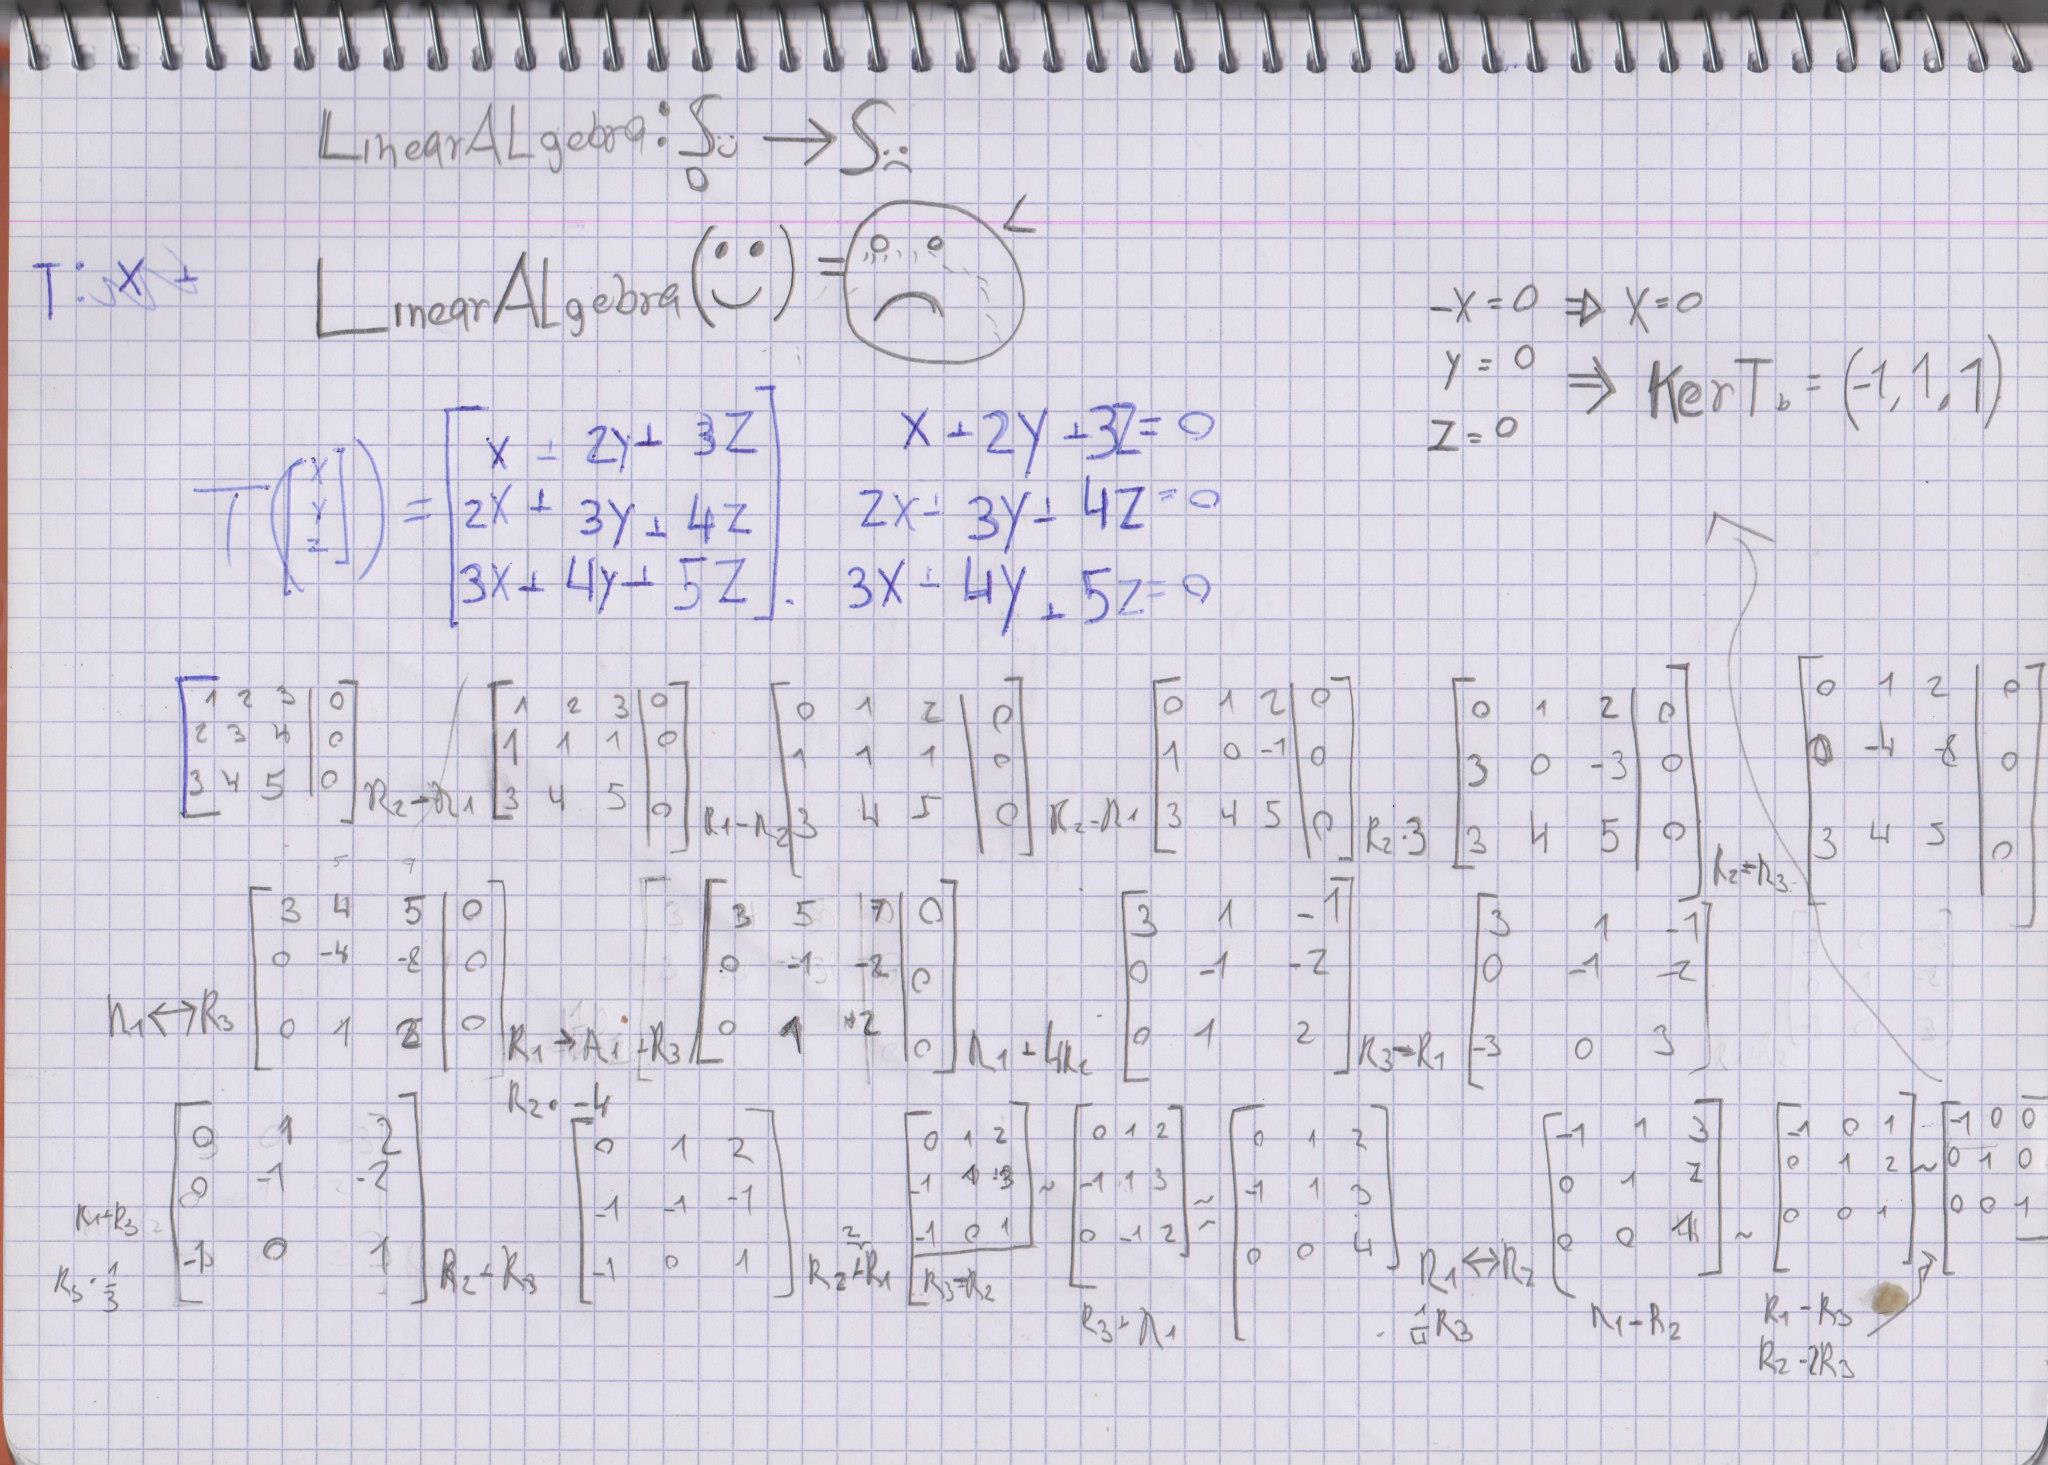 LinearALgebra: S → S
LinearALgebra( ) =
T: x +
-x = 0 ⇒ x = 0
y = 0
z = 0
⇒ Ker T = (-1, 1, 1)
T([x y z]) = [x + 2y + 3z
2x + 3y + 4z
3x + 4y + 5z].
x + 2y + 3z = 0
2x + 3y + 4z = 0
3x + 4y + 5z = 0
[1 2 3 | 0
2 3 4 | 0
3 4 5 | 0] R2-R1
[1 2 3 | 0
1 1 1 | 0
3 4 5 | 0] R1-R2
[0 1 2 | 0
1 1 1 | 0
3 4 5 | 0] R2-R1
[0 1 2 | 0
1 0 -1 | 0
3 4 5 | 0] R2·3
[0 1 2 | 0
3 0 -3 | 0
3 4 5 | 0] R2-R3
[0 1 2 | 0
0 -4 -8 | 0
3 4 5 | 0]
R1↔R3
[3 4 5 | 0
0 -4 -8 | 0
0 1 2 | 0] R1→R1+R3
R2·-4
[3 5 7 | 0
0 -1 -2 | 0
0 1 2 | 0] R1+4R2
[3 1 -1
0 -1 -2
0 1 2] R3-R1
[3 1 -1
0 -1 -2
-3 0 3]
R1+R3
R3·1/3
[0 1 2
0 -1 -2
-1 0 1] R2+R3
[0 1 2
-1 -1 -1
-1 0 1] R2+2R1
[0 1 2
-1 1 3
-1 0 1] ~
R3-R2
[0 1 2
-1 1 3
0 -1 2] ~
R3+R1
[0 1 2
-1 1 3
0 0 4] R1↔R2
R3
[-1 1 3
0 1 2
0 0 1] ~
R1-R2
[-1 0 1
0 1 2
0 0 1] ~
R1-R3
R2-2R3
[-1 0 0
0 1 0
0 0 1]